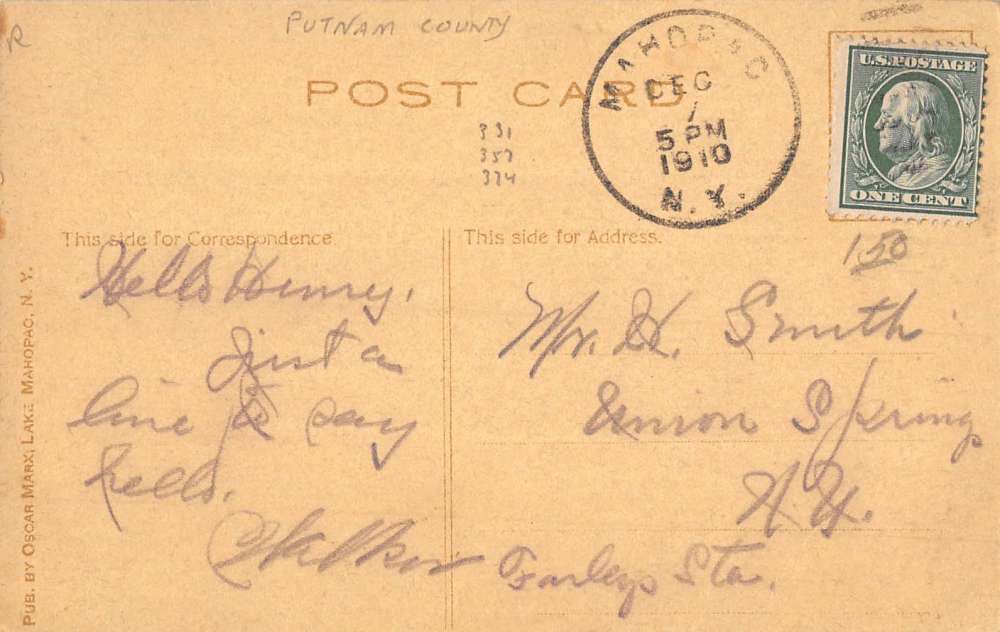 R
PUTNAM COUNTY
POST CARD
MAHOPAC
DEC
1
5 PM
1910
N.Y.
U.S. POSTAGE
ONE CENT
331
357
374
1.50
This side for Correspondence
Hello Henry,
Just a
line to say
hello.
Walker
This side for Address.
Mr. H. Smith
Union Springs
N.Y.
Farleys Sta.
PUB. BY OSCAR MARX, LAKE MAHOPAC, N. Y.